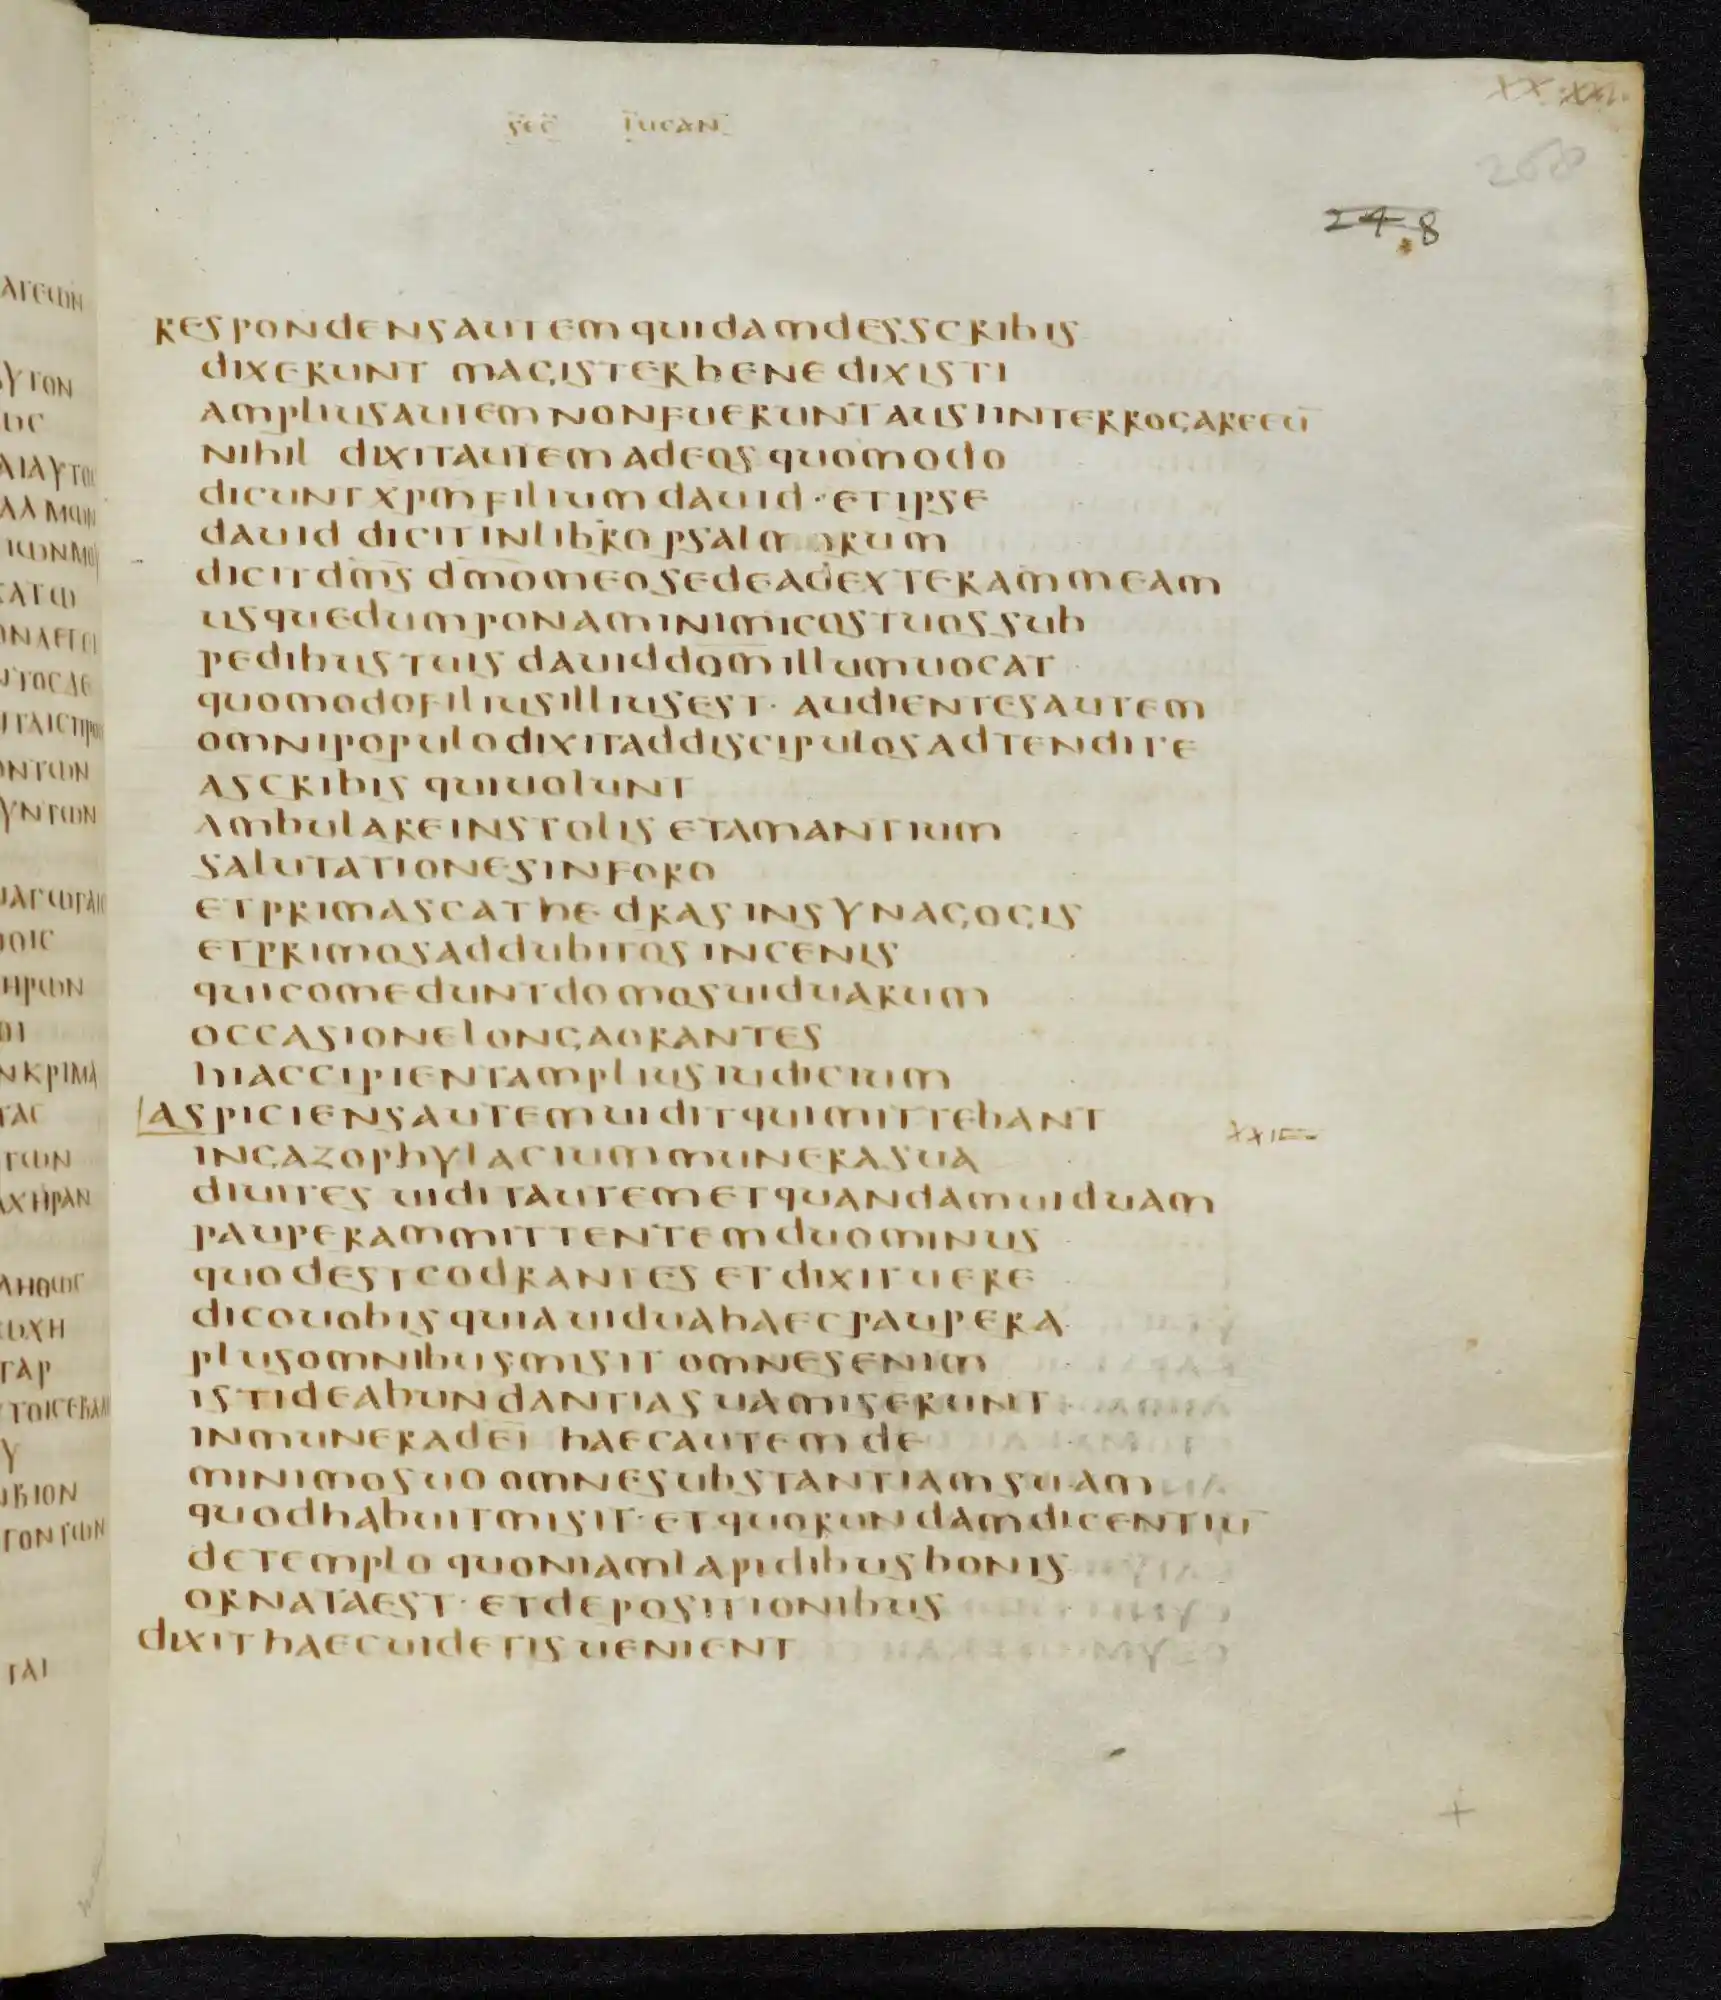 XX. XXI.
260
sec lucan
248
respondens autem quidam des scribis
dixerunt magister bene dixisti
amplius autem non fuerunt ausi interrogare eū
nihil dixit autem ad eos quomodo
dicunt xp̄m filium dauid · et ipse
dauid dicit in libro psalmorum
dicit dm̄s dm̄o meo sede ad exteram meam
usque dum ponam inimicos tuos sub
pedibus tuis dauid dom̄ illum uocat
quomodo filius illius est · audientes autem
omni populo dixit ad discipulos adtendite
a scribis qui uolunt
ambulare in stolis et amantium
salutationes in foro
et primas cathedras in synagogis
et primos addubitos in cenis
qui comedunt domos uiduarum
occasione longa orantes
hi accipient amplius iudicium
aspiciens autem uidit qui mittebant
XXI
in gazophylacium munera sua
diuites uidit autem et quandam uiduam
pauperam mittentem duo minus
quod est codrantes et dixit uere
dico uobis quia uidua haec paupera
plus omnibus misit omnes enim
isti de abundantia sua miserunt
in munera dei haec autem de
minimo suo omne substantiam suam
quod habuit misit · et quorundam dicentiū
de templo quoniam lapidibus bonis
ornata est · et depositionibus
dixit haec uidetis uenient